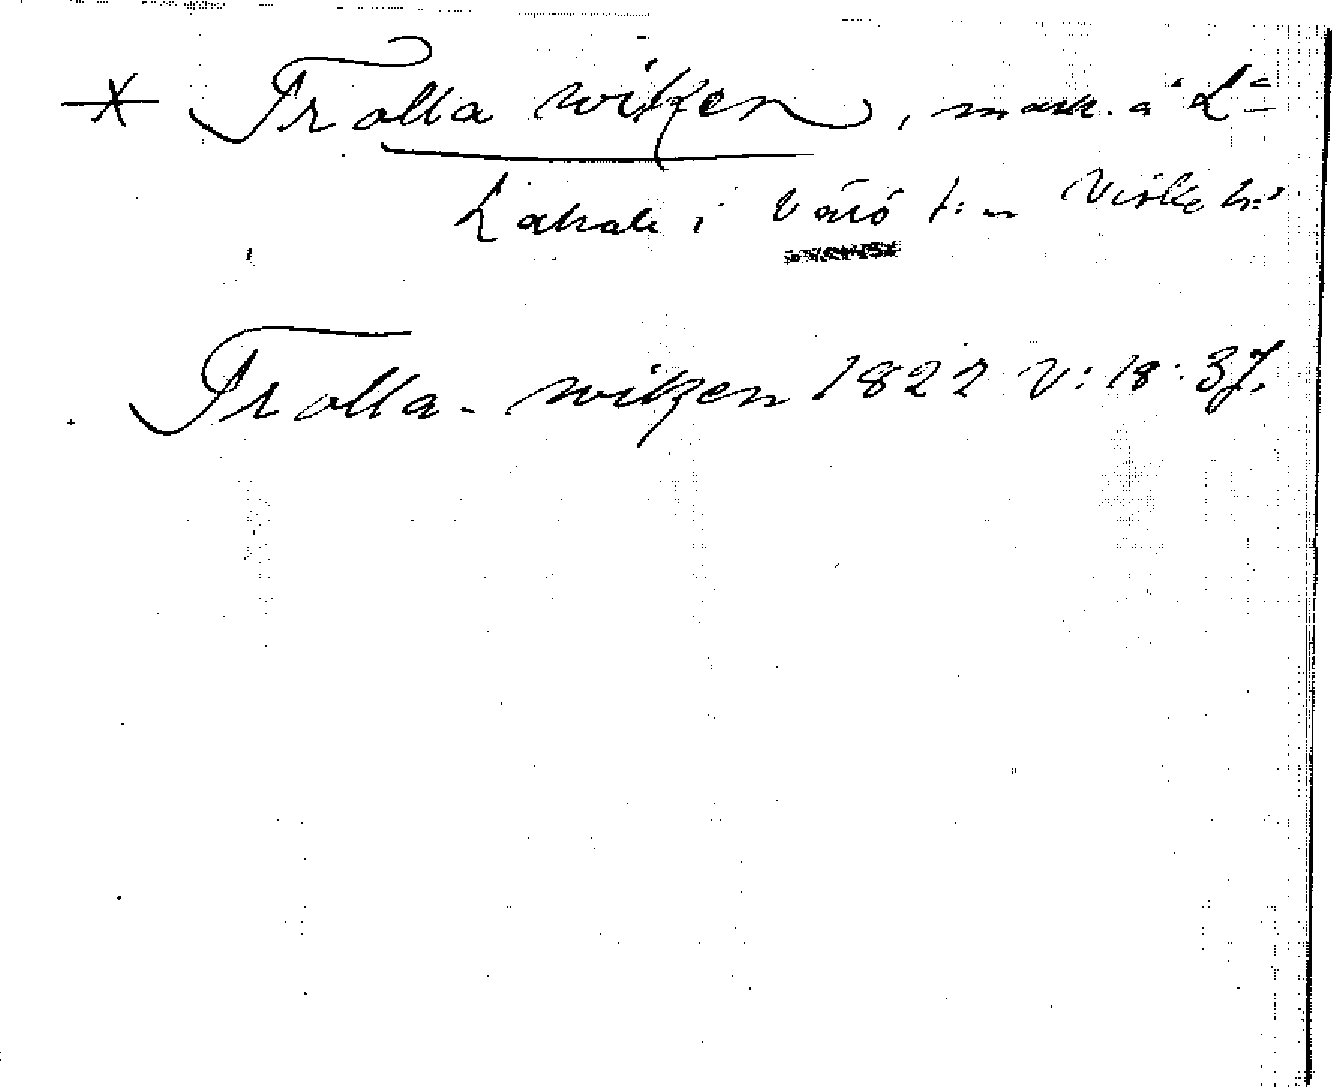 * Trolla wiken, mark. å L=
i Värö s:n Viske h:d
Trolla-wiken 1822 V:18:37.